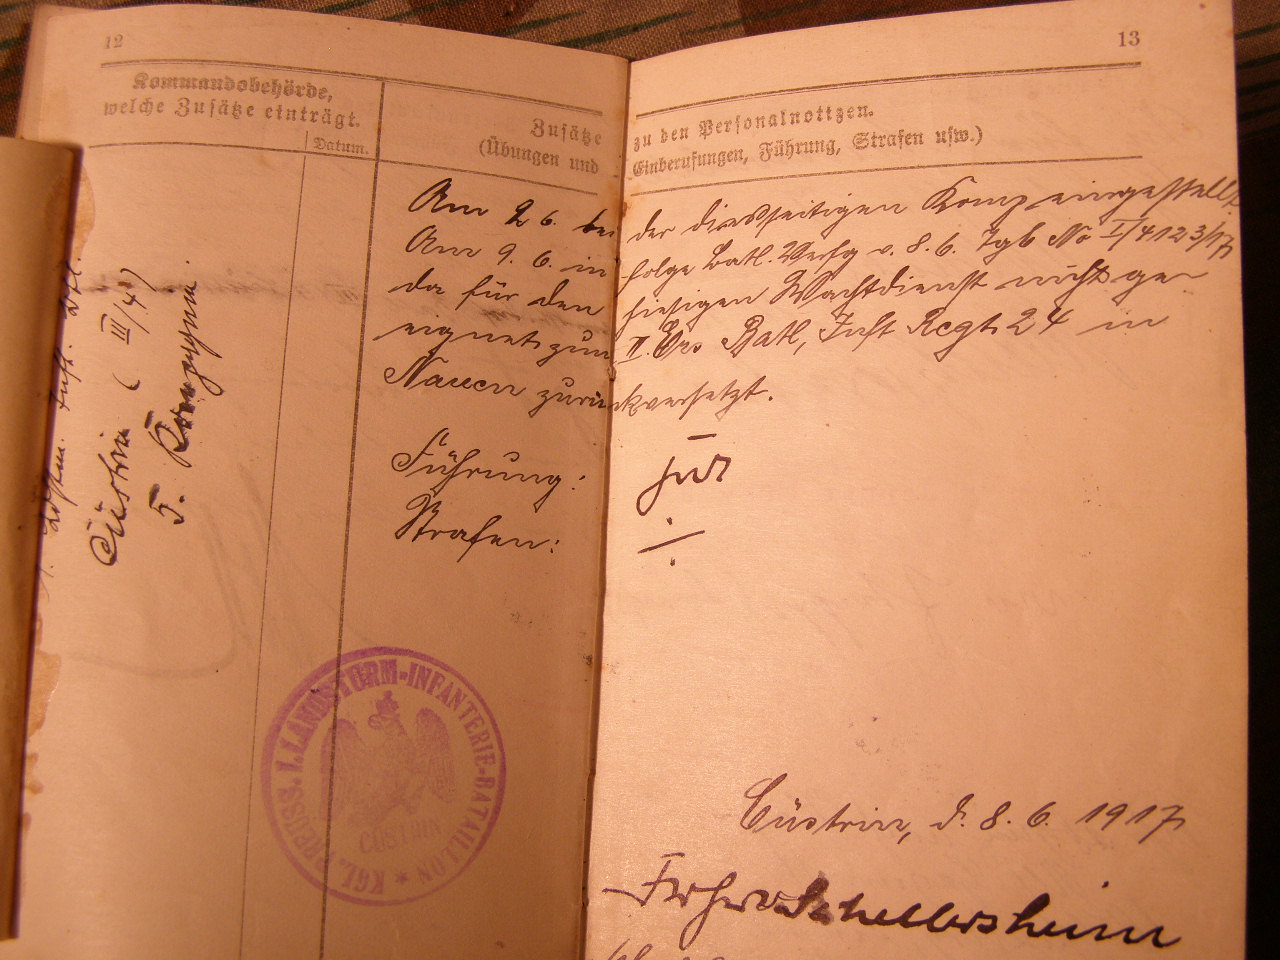 12
13
Kommandobehörde,
welche Zusätze einträgt.
Datum.
Zusätze zu den Personalnotizen.
(Übungen und Einberufungen, Führung, Strafen usw.)
Am 2 6. bei der diesseitigen Komp eingestellt.
Am 9. 6. infolge Batl. Verfg v. 8. 6. Tgb No I/4123/17
da für den hiesigen Wachtdienst nicht ge-
eignet zum II. Ers Batl, Inft Regt 24 in
Nauen zurückversetzt.
Führung: gut
Strafen: ÷
Cüstrin, d. 8. 6. 1917
Frhr v Schellersheim
Cüstrin (III/4)
5. Kompagnie.
KGL. PREUSS. I. LANDSTURM-INFANTERIE-BATAILLON
CÜSTRIN